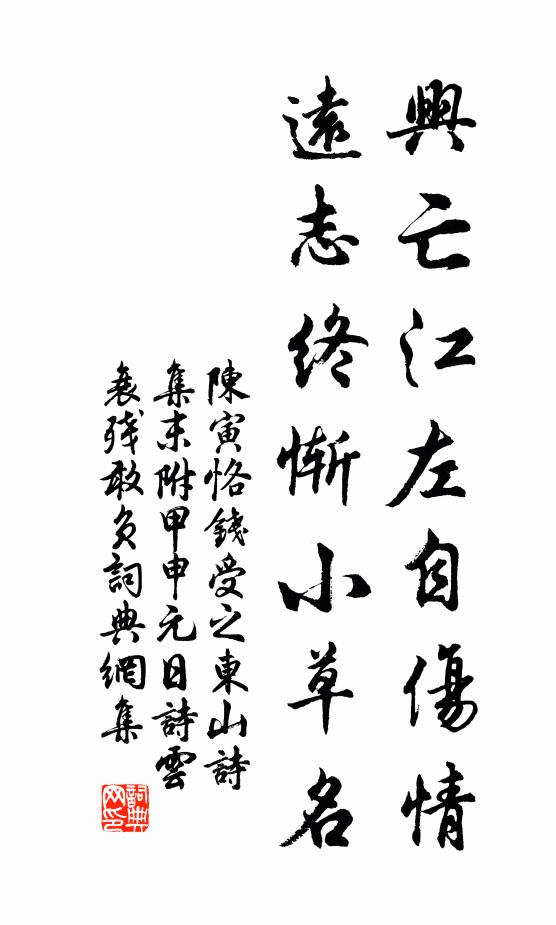 興亡江左自傷情
遠志終慚小草名
陳寅恪錢受之東山詩
集末附甲申元日詩雲
衰殘敢負詞典網集
詞典网印